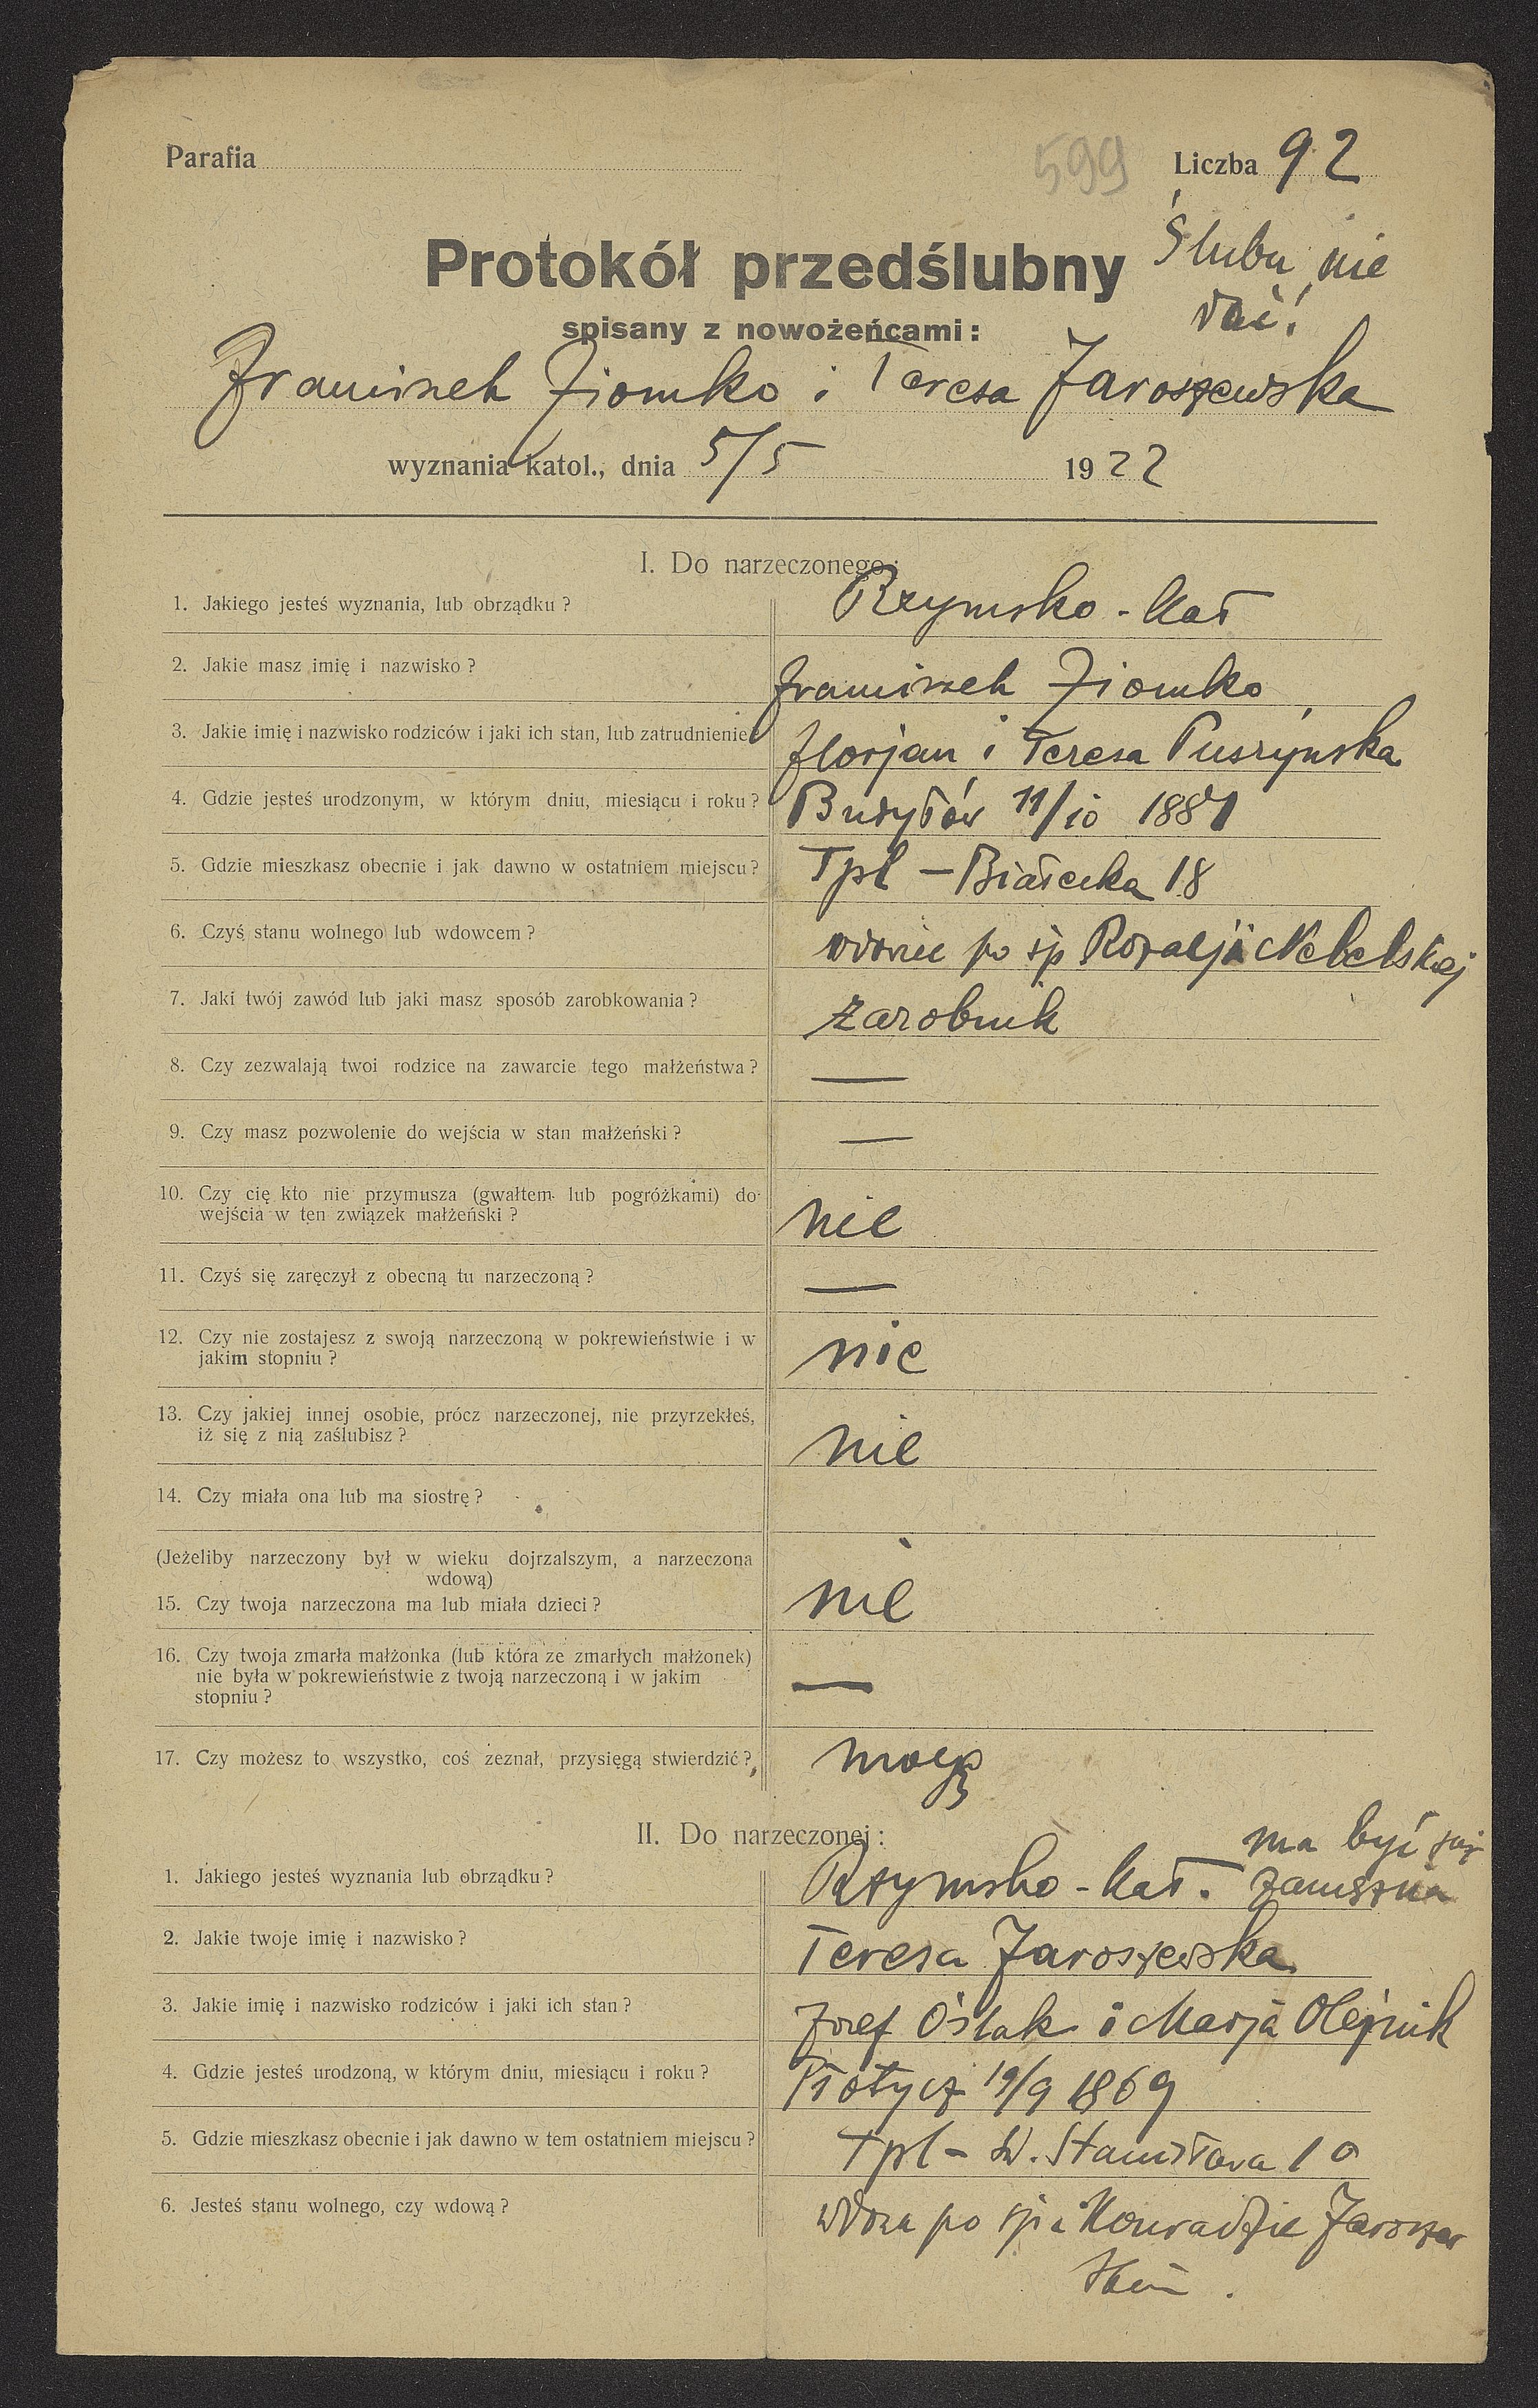 Parafia
599
Liczba 92
Protokół przedślubny
Ślubu nie
dać!
spisany z nowożeńcami:
Franciszek Ziomko i Teresa Jaroszewska
wyznania katol., dnia 5/5 1922
I. Do narzeczonego:
1. Jakiego jesteś wyznania, lub obrządku? Rzymsko-kat
2. Jakie masz imię i nazwisko? Franciszek Ziomko
3. Jakie imię i nazwisko rodziców i jaki ich stan, lub zatrudnienie? Florjan i Teresa Puszyńska
4. Gdzie jesteś urodzonym, w którym dniu, miesiącu i roku? Budyłów 11/10 1881
5. Gdzie mieszkasz obecnie i jak dawno w ostatniem miejscu? Tpl – Białecka 18
6. Czyś stanu wolnego lub wdowcem? wdowiec po śp Rozalji Nebelskiej
7. Jaki twój zawód lub jaki masz sposób zarobkowania? zarobnik
8. Czy zezwalają twoi rodzice na zawarcie tego małżeństwa? —
9. Czy masz pozwolenie do wejścia w stan małżeński? —
10. Czy cię kto nie przymusza (gwałtem lub pogróżkami) do
wejścia w ten związek małżeński? nie
11. Czyś się zaręczył z obecną tu narzeczoną? —
12. Czy nie zostajesz z swoją narzeczoną w pokrewieństwie i w
jakim stopniu? nie
13. Czy jakiej innej osobie, prócz narzeczonej, nie przyrzekłeś,
iż się z nią zaślubisz? nie
14. Czy miała ona lub ma siostrę?
(Jeżeliby narzeczony był w wieku dojrzalszym, a narzeczona
wdową)
15. Czy twoja narzeczona ma lub miała dzieci? nie
16. Czy twoja zmarła małżonka (lub która ze zmarłych małżonek)
nie była w pokrewieństwie z twoją narzeczoną i w jakim
stopniu? —
17. Czy możesz to wszystko, coś zeznał, przysięgą stwierdzić? mogę
II. Do narzeczonej:
ma być
1. Jakiego jesteś wyznania lub obrządku? Rzymsko-kat. zamężna
2. Jakie twoje imię i nazwisko? Teresa Jaroszewska
3. Jakie imię i nazwisko rodziców i jaki ich stan? Józef Oślak i Marja Olejnik
4. Gdzie jesteś urodzoną, w którym dniu, miesiącu i roku? Płotycz 19/9 1869
5. Gdzie mieszkasz obecnie i jak dawno w tem ostatniem miejscu? Tpl – św. Stanisława 10
6. Jesteś stanu wolnego, czy wdową? wdowa po śp. Konradzie Jaroszew
skim.